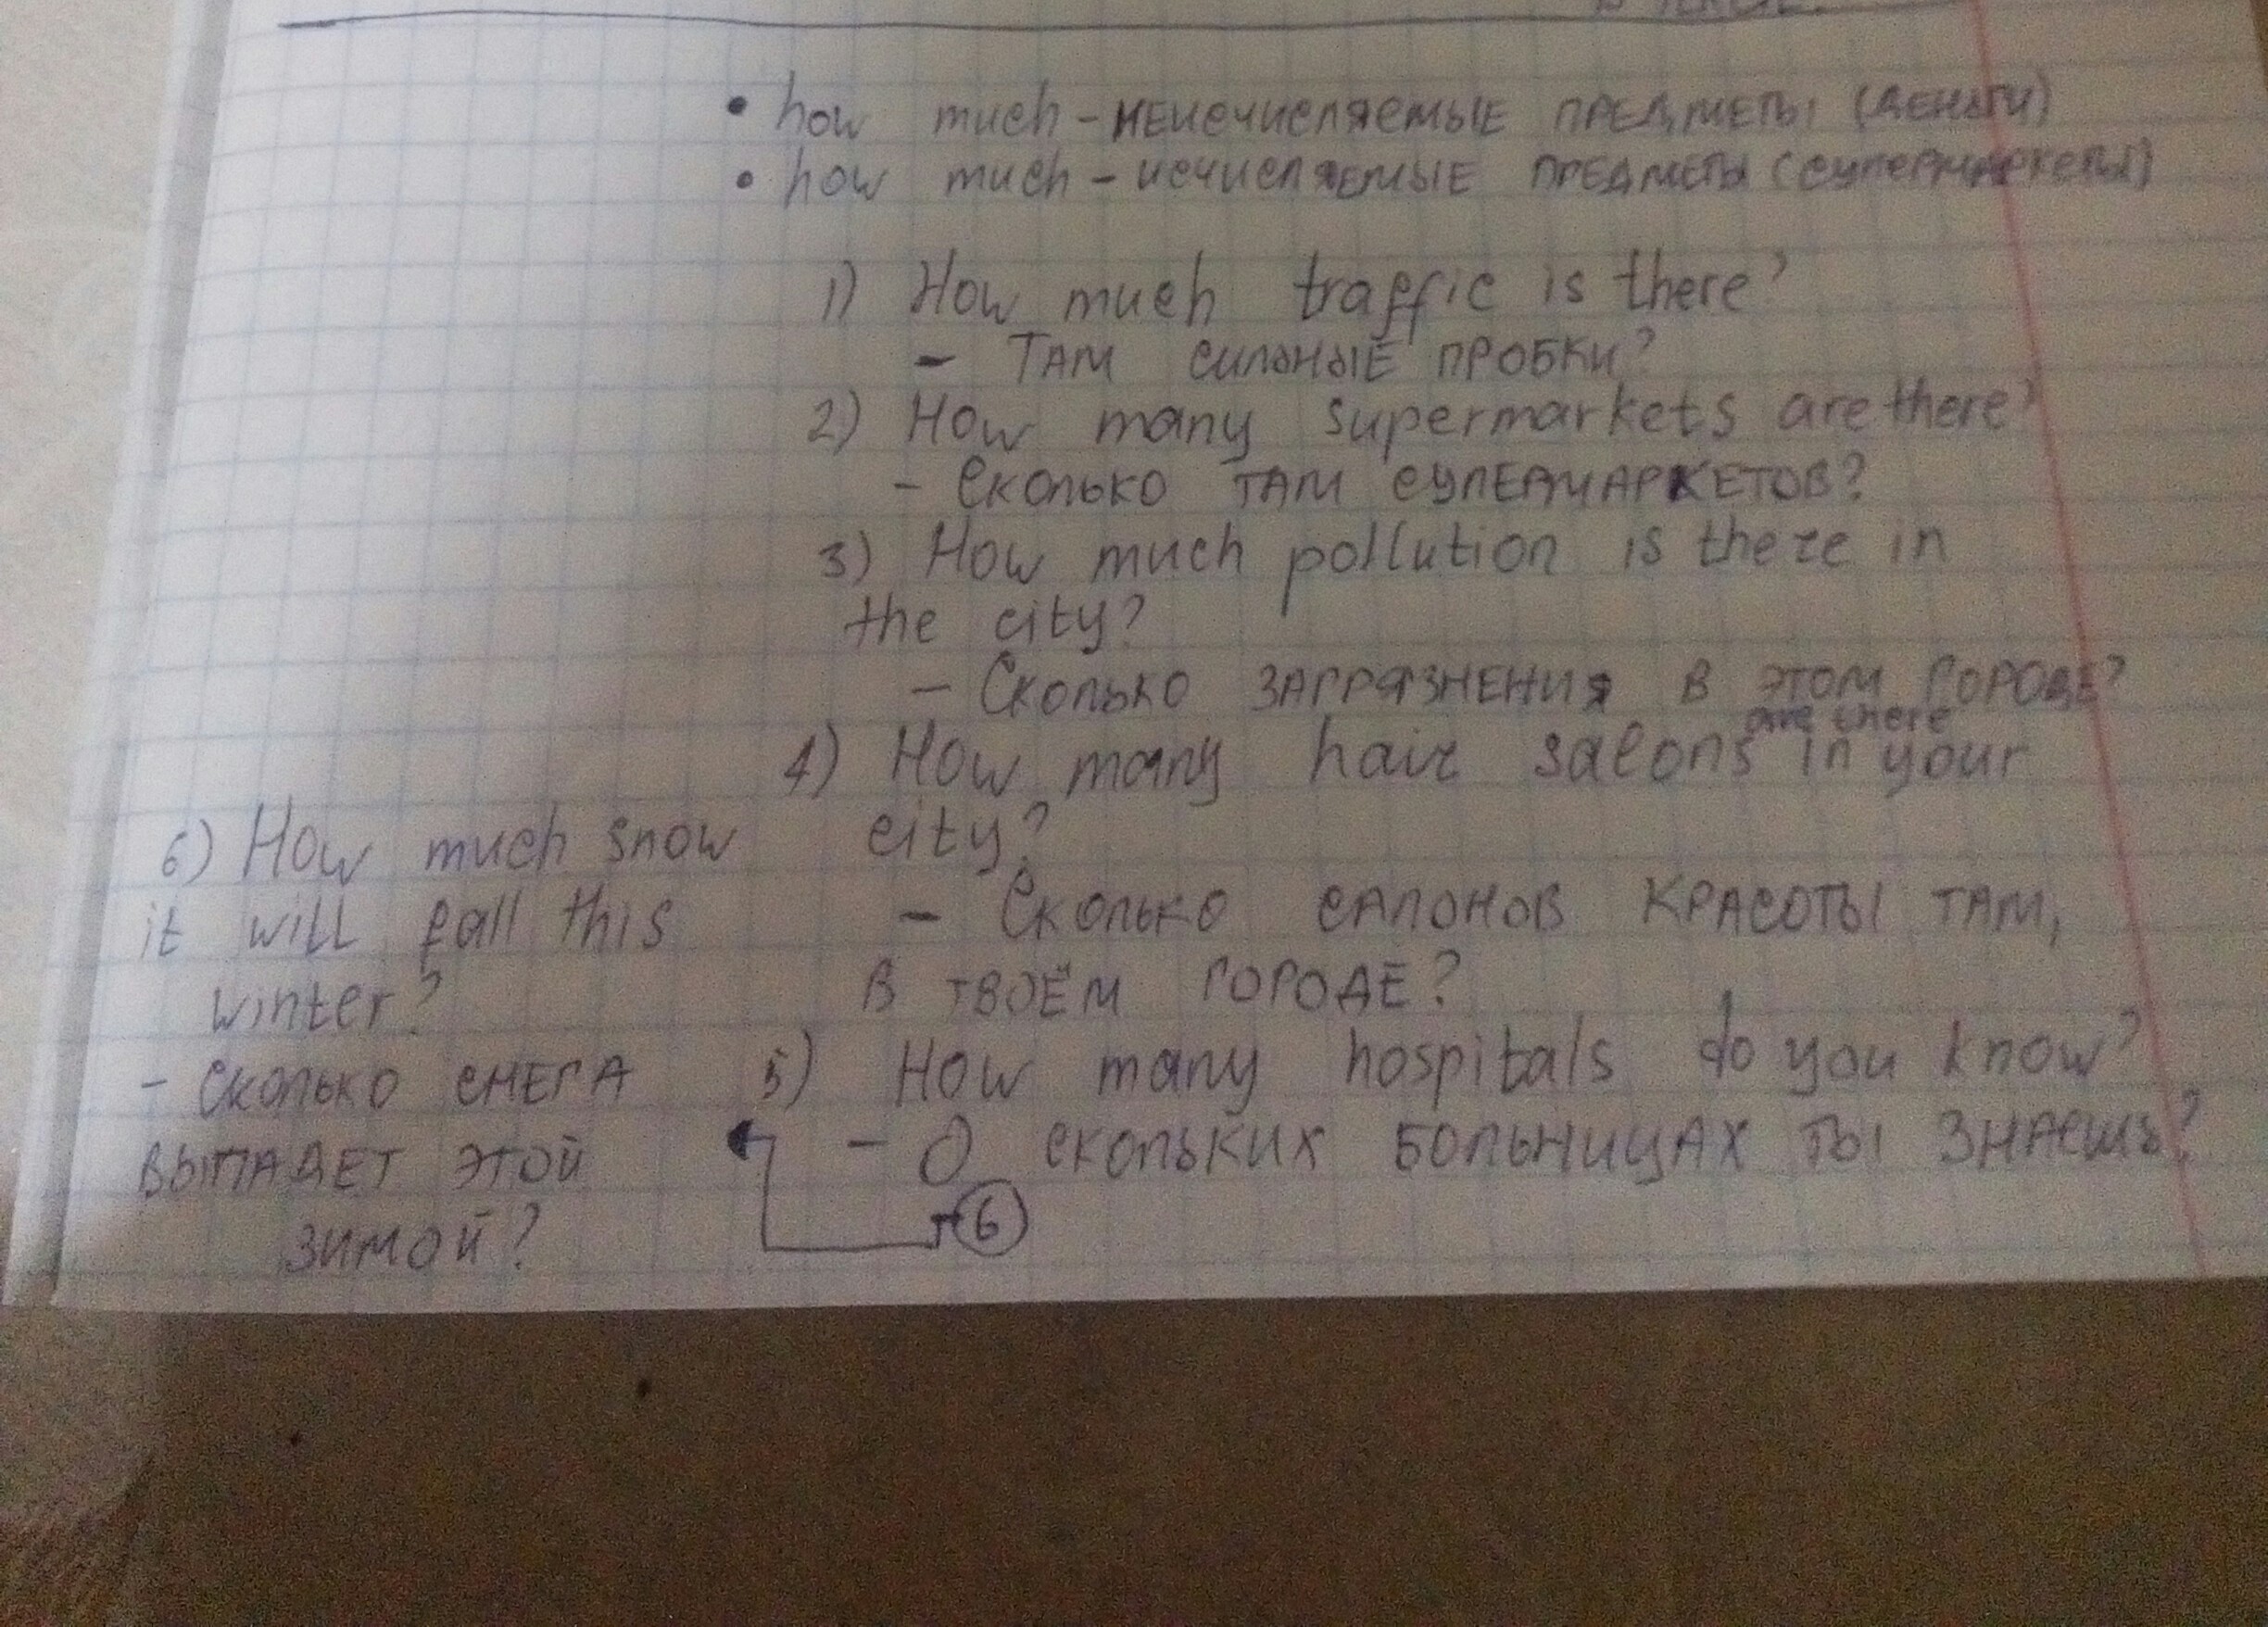 • how much - неисчисляемые предметы (деньги)
• how much - исчисляемые предметы (супермаркеты)
1) How much traffic is there?
- Там сильные пробки?
2) How many supermarkets are there?
- Сколько там супермаркетов?
3) How much pollution is there in
the city?
- Сколько загрязнения в этом городе?
are there
4) How many hair salons in your
city?
- Сколько салонов красоты там,
в твоём городе?
5) How many hospitals do you know?
- О скольких больницах ты знаешь?
6
6) How much snow
it will fall this
winter?
- Сколько снега
выпадет этой
зимой?